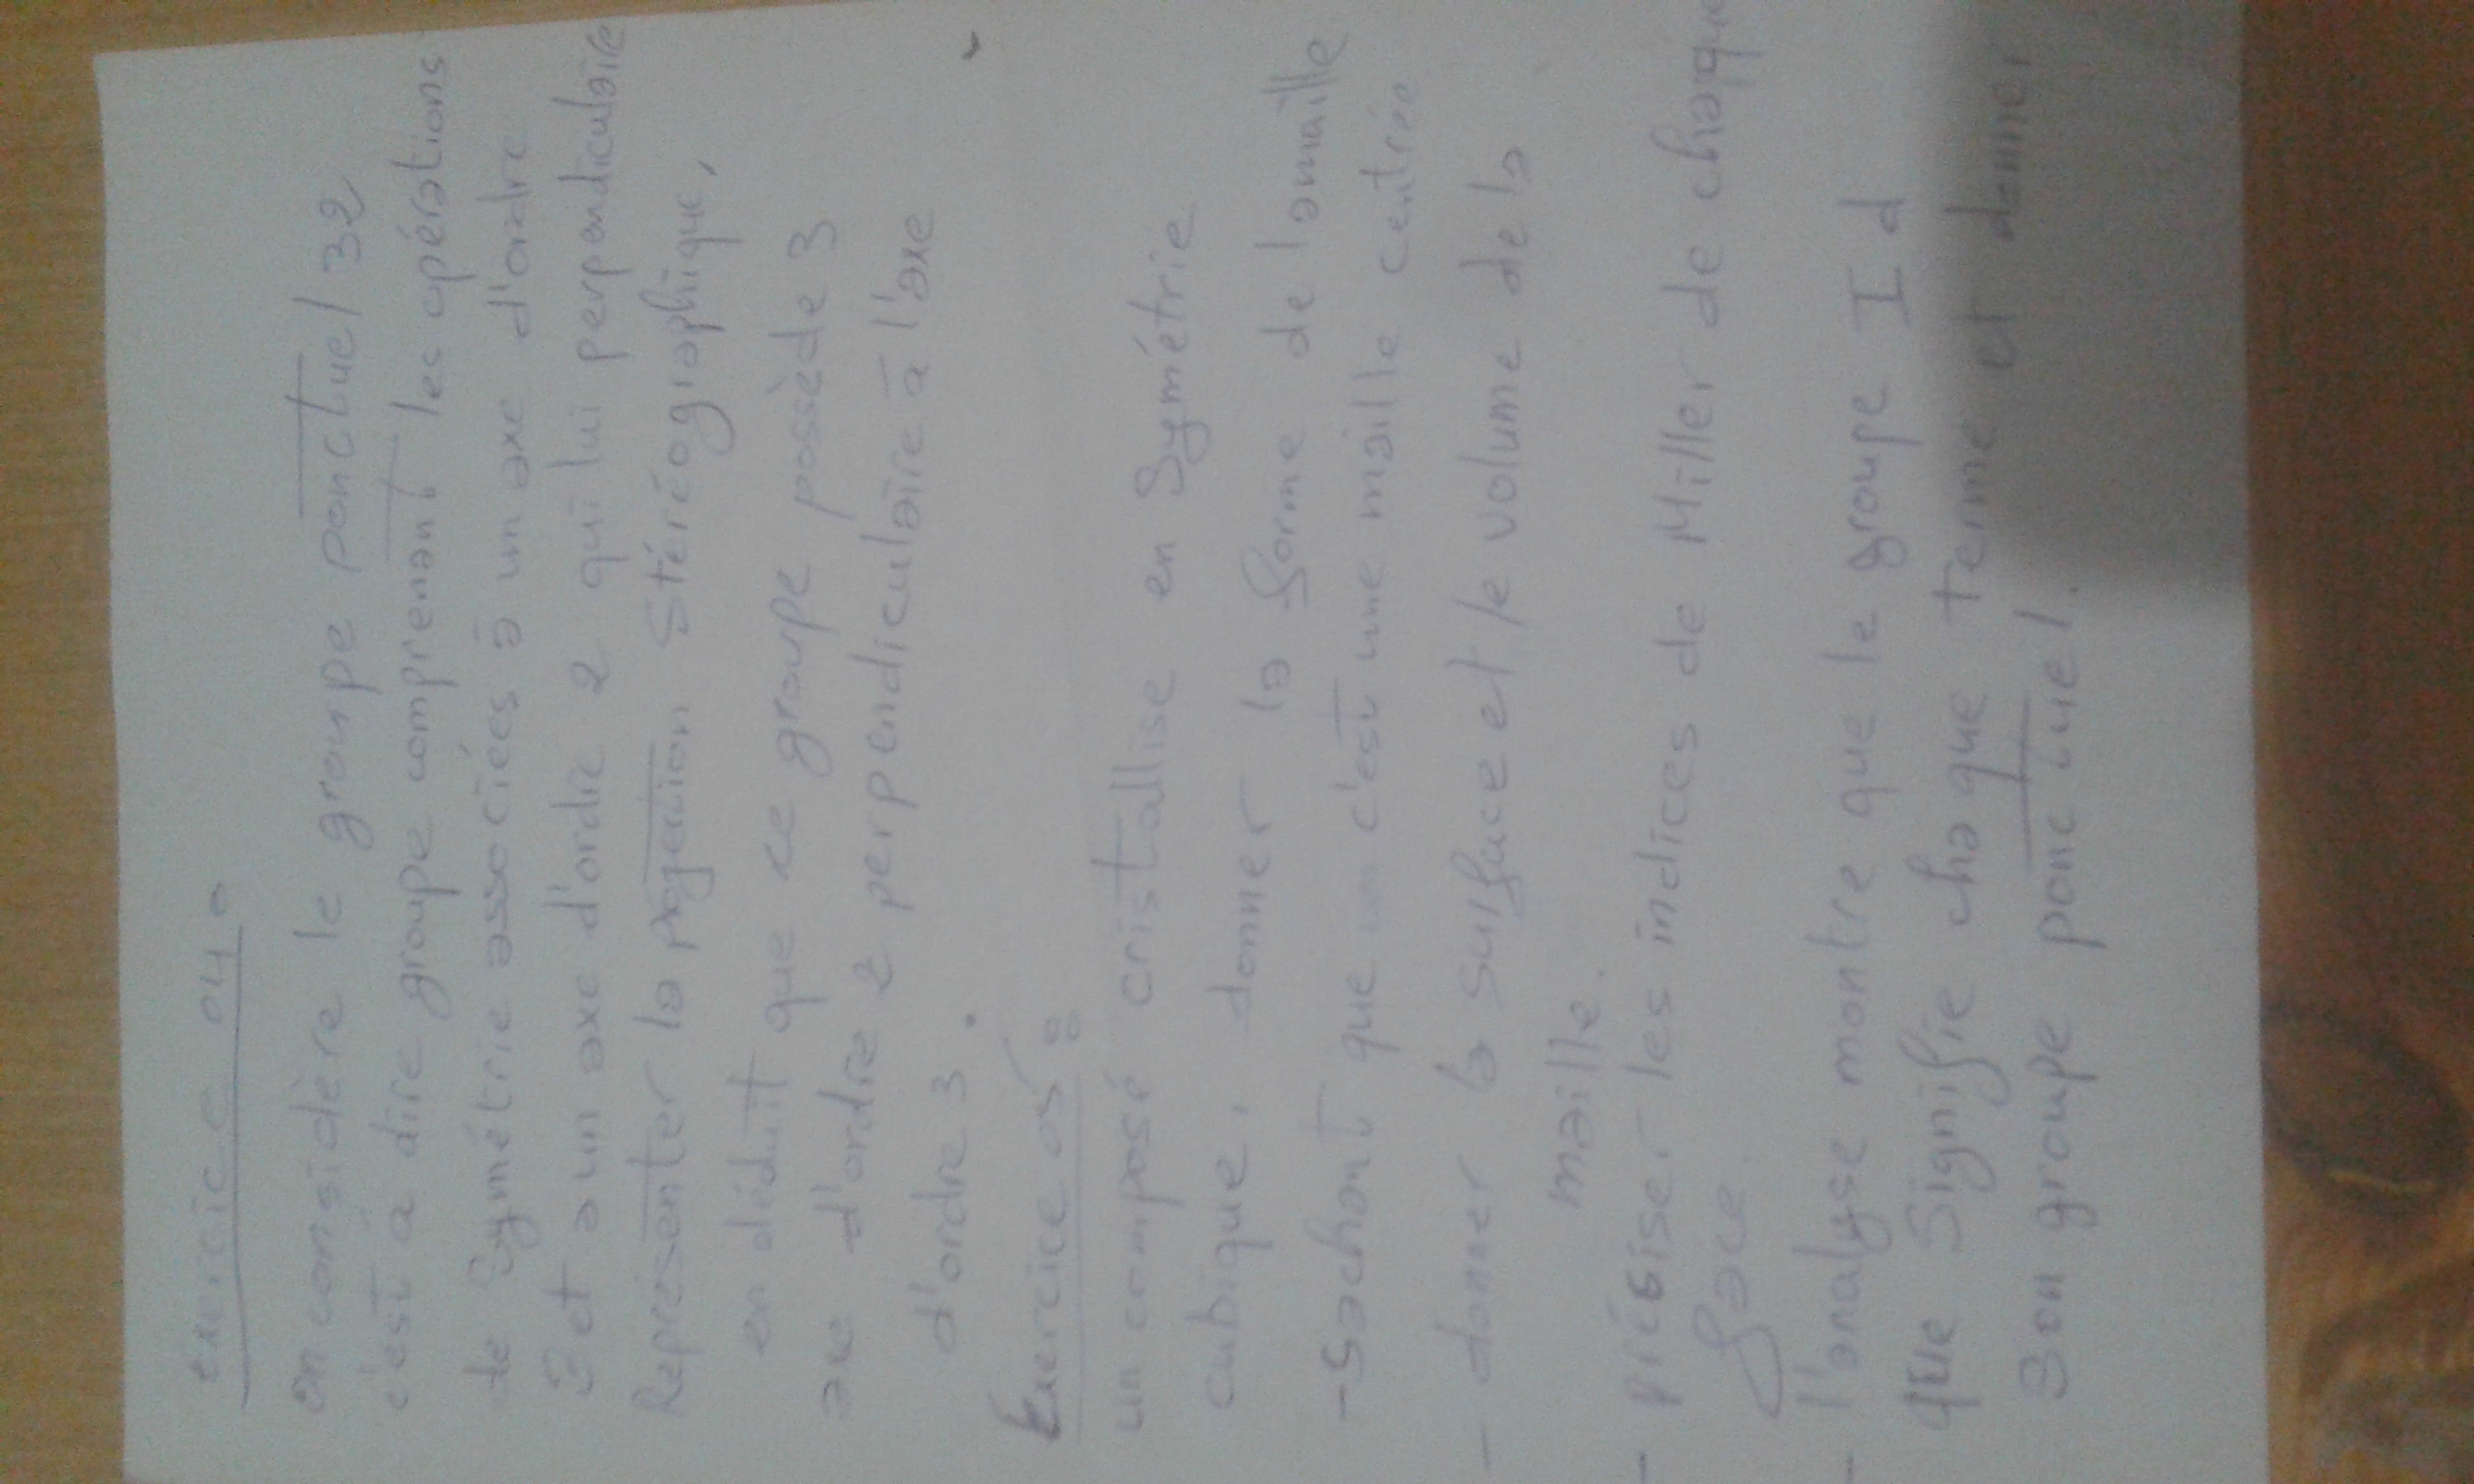 exercice 04:
on considère le groupe ponctuel 32
c'est à dire groupe comprenant les opérations
de Symétrie associées à un axe d'ordre
3 et à un axe d'ordre 2 qui lui perpendiculaire
Représenter la projection Stéréographique,
en déduit que ce groupe possède 3
axe d'ordre 2 perpendiculaire à l'axe
d'ordre 3.
Exercice 05:
un composé cristallise en Symétrie
cubique, donner la forme de la maille
- Sachant que c'est une maille centrée
- donner la surface et le volume de la
maille.
- présiser les indices de Miller de chaque
face.
- l'analyse montre que le groupe I d
que Signifie chaque terme et donner
son groupe ponctuel.